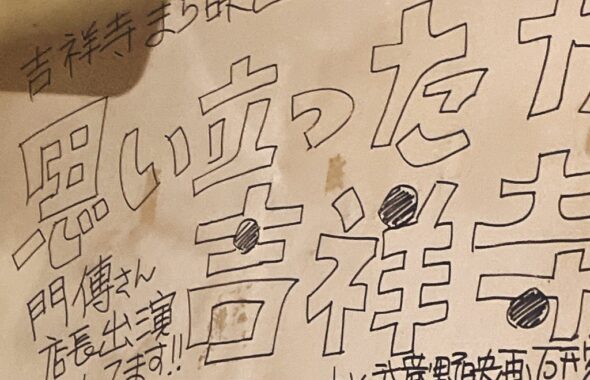 吉祥寺まち
思い立った
吉祥寺
門傳さん
店長出演
てます!!
武蔵野映画